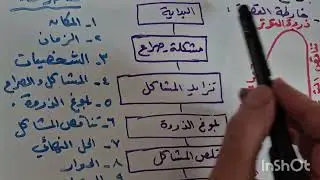 خارطة
ذروة التوتر
البداية
مشكلة صراع
تزايد المشاكل
بلوغ الذروة
تقلص المشاكل
١- المكان
٢- الزمان
٣- الشخصيات
٤- المشاكل والصراع
٥- بلوغ الذروة
٦- تناقص المشاكل
٧- الحل النهائي
٨- الحوار
InShOt